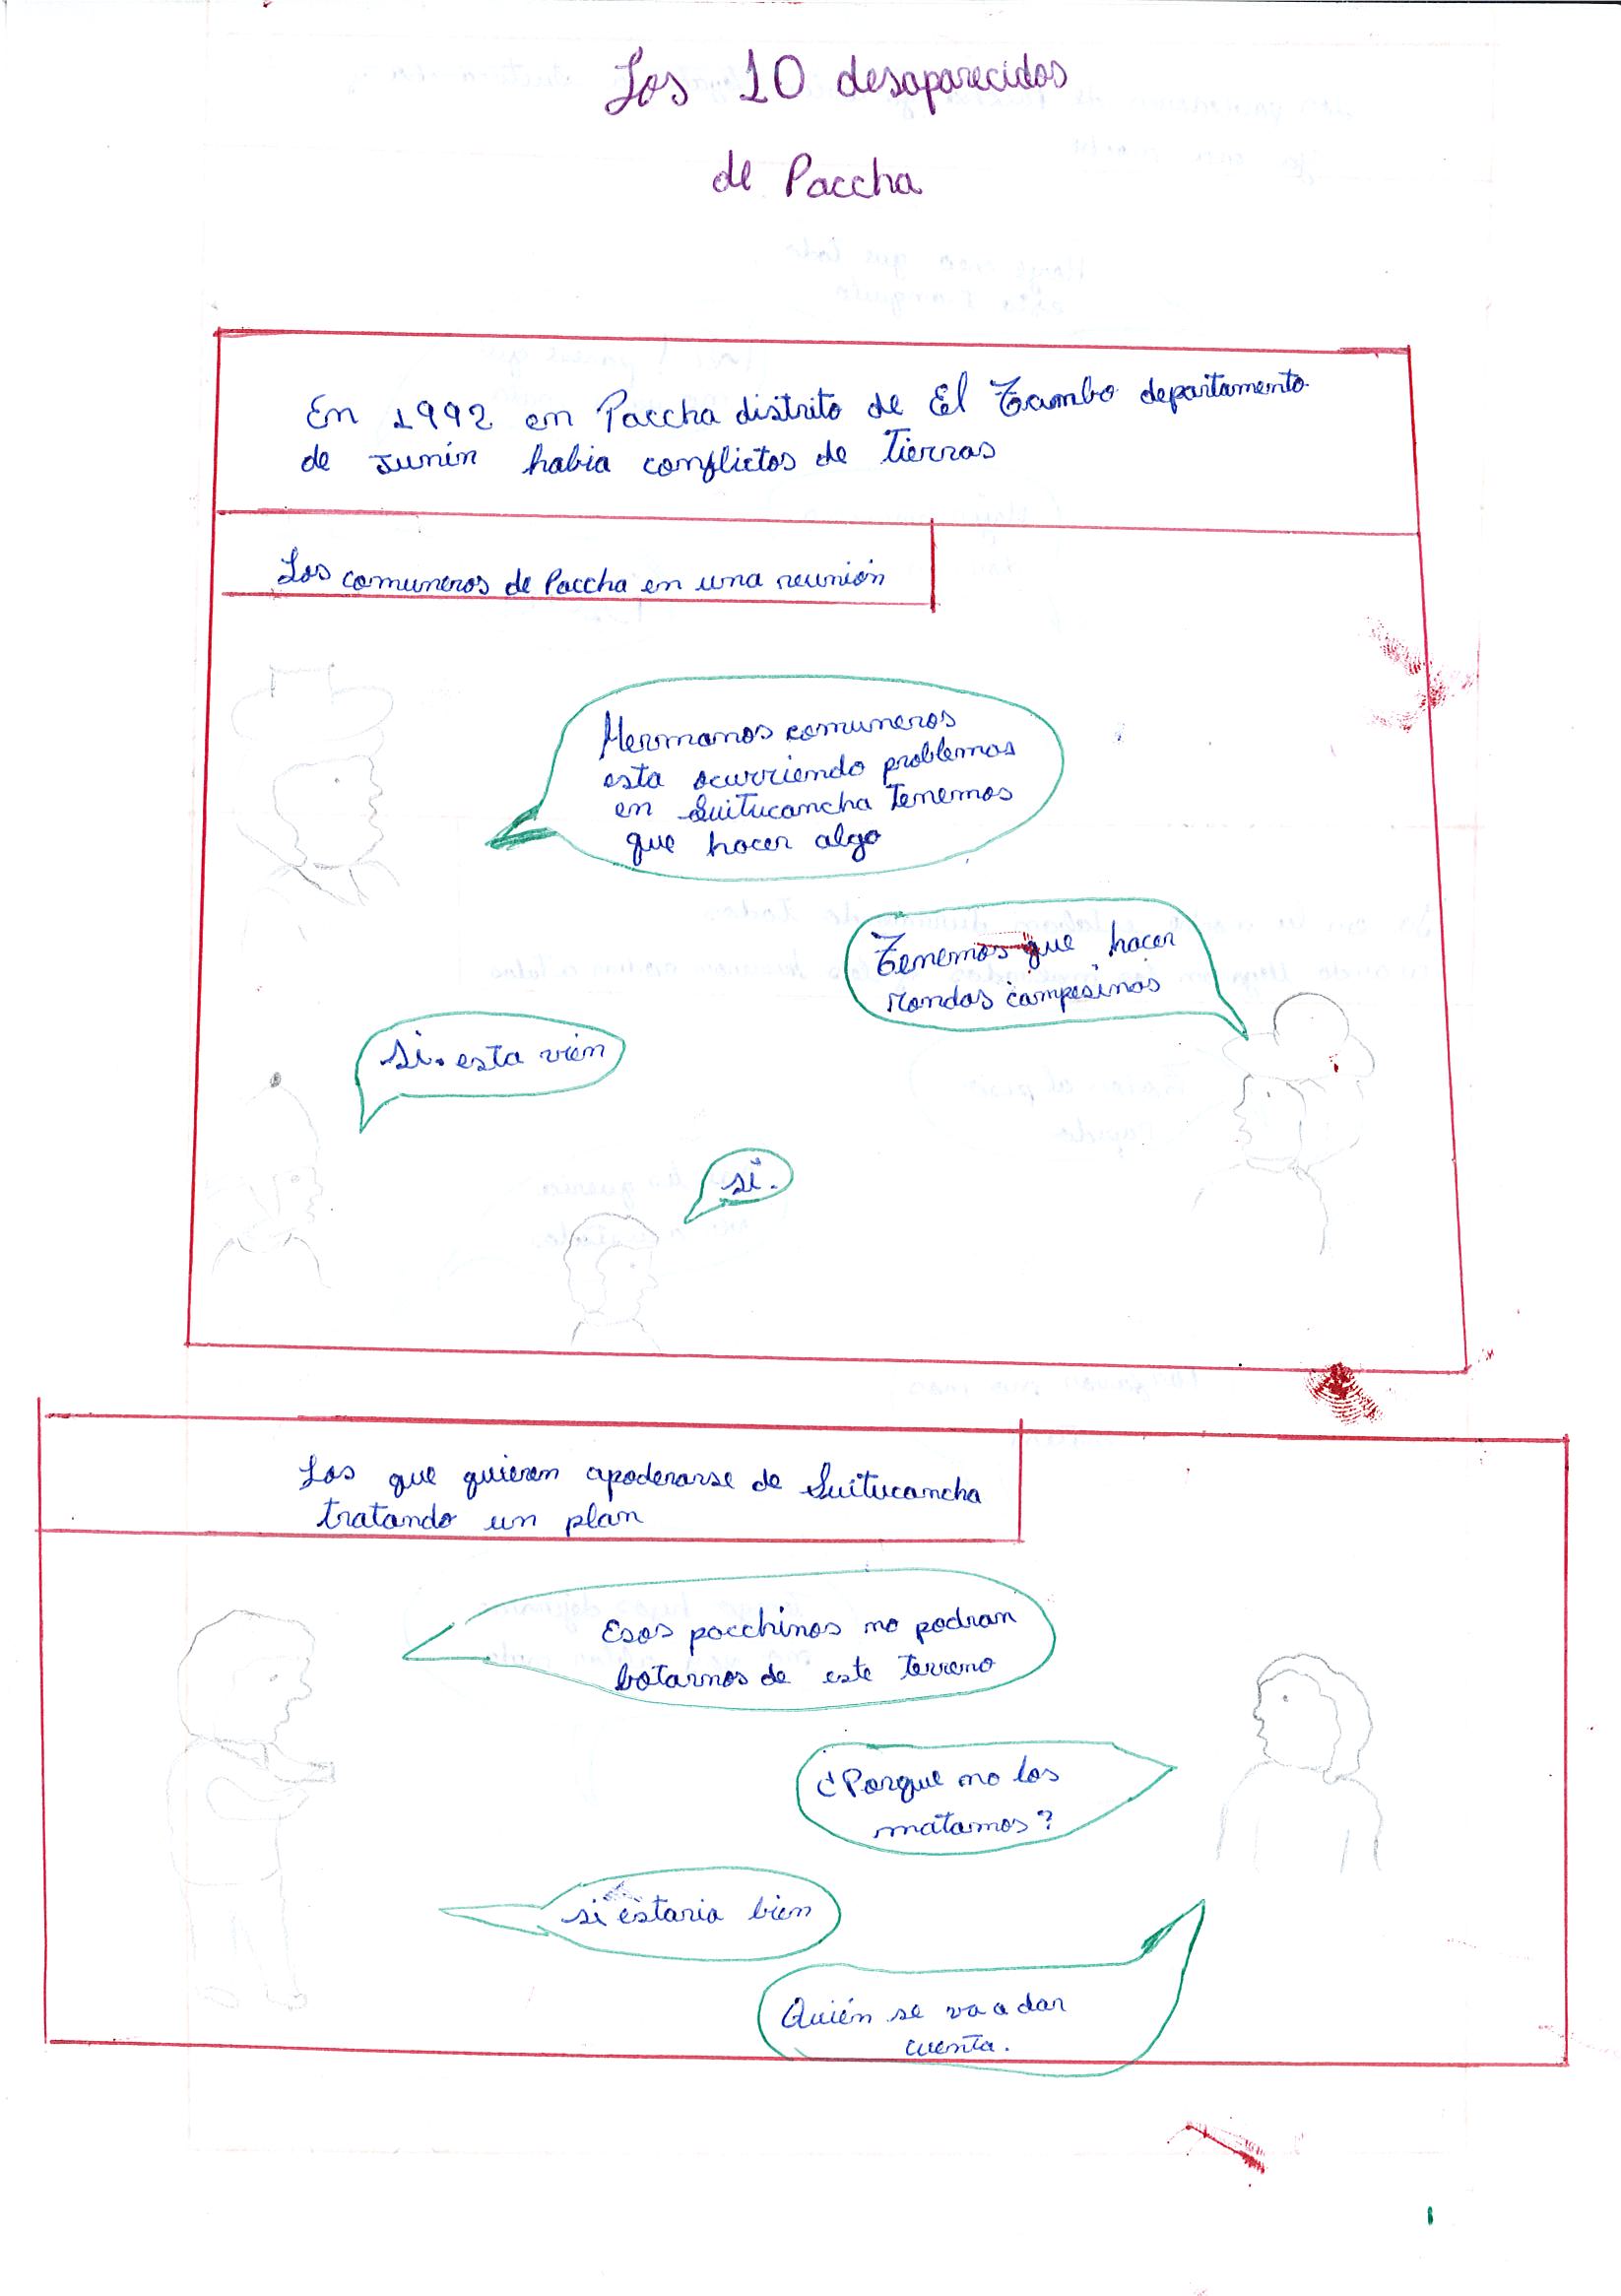 Los 10 desaparecidos
de Paccha
En 1992 en Paccha distrito de El Tambo departamento
de Junín habia conflictos de Tierras
Los comuneros de Paccha en una reunión
Hermanos comuneros
esta ocurriendo problemas
en Suitucancha Tenemos
que hacer algo
Tenemos que hacer
rondas campesinas
Si. esta vien
si.
Los que quieren apoderarse de Suitucancha
tratando un plan
Esos pacchinos no podran
botarnos de este terreno
¿Porque no los
matamos?
si estaria bien
Quién se va a dar
cuenta.
1